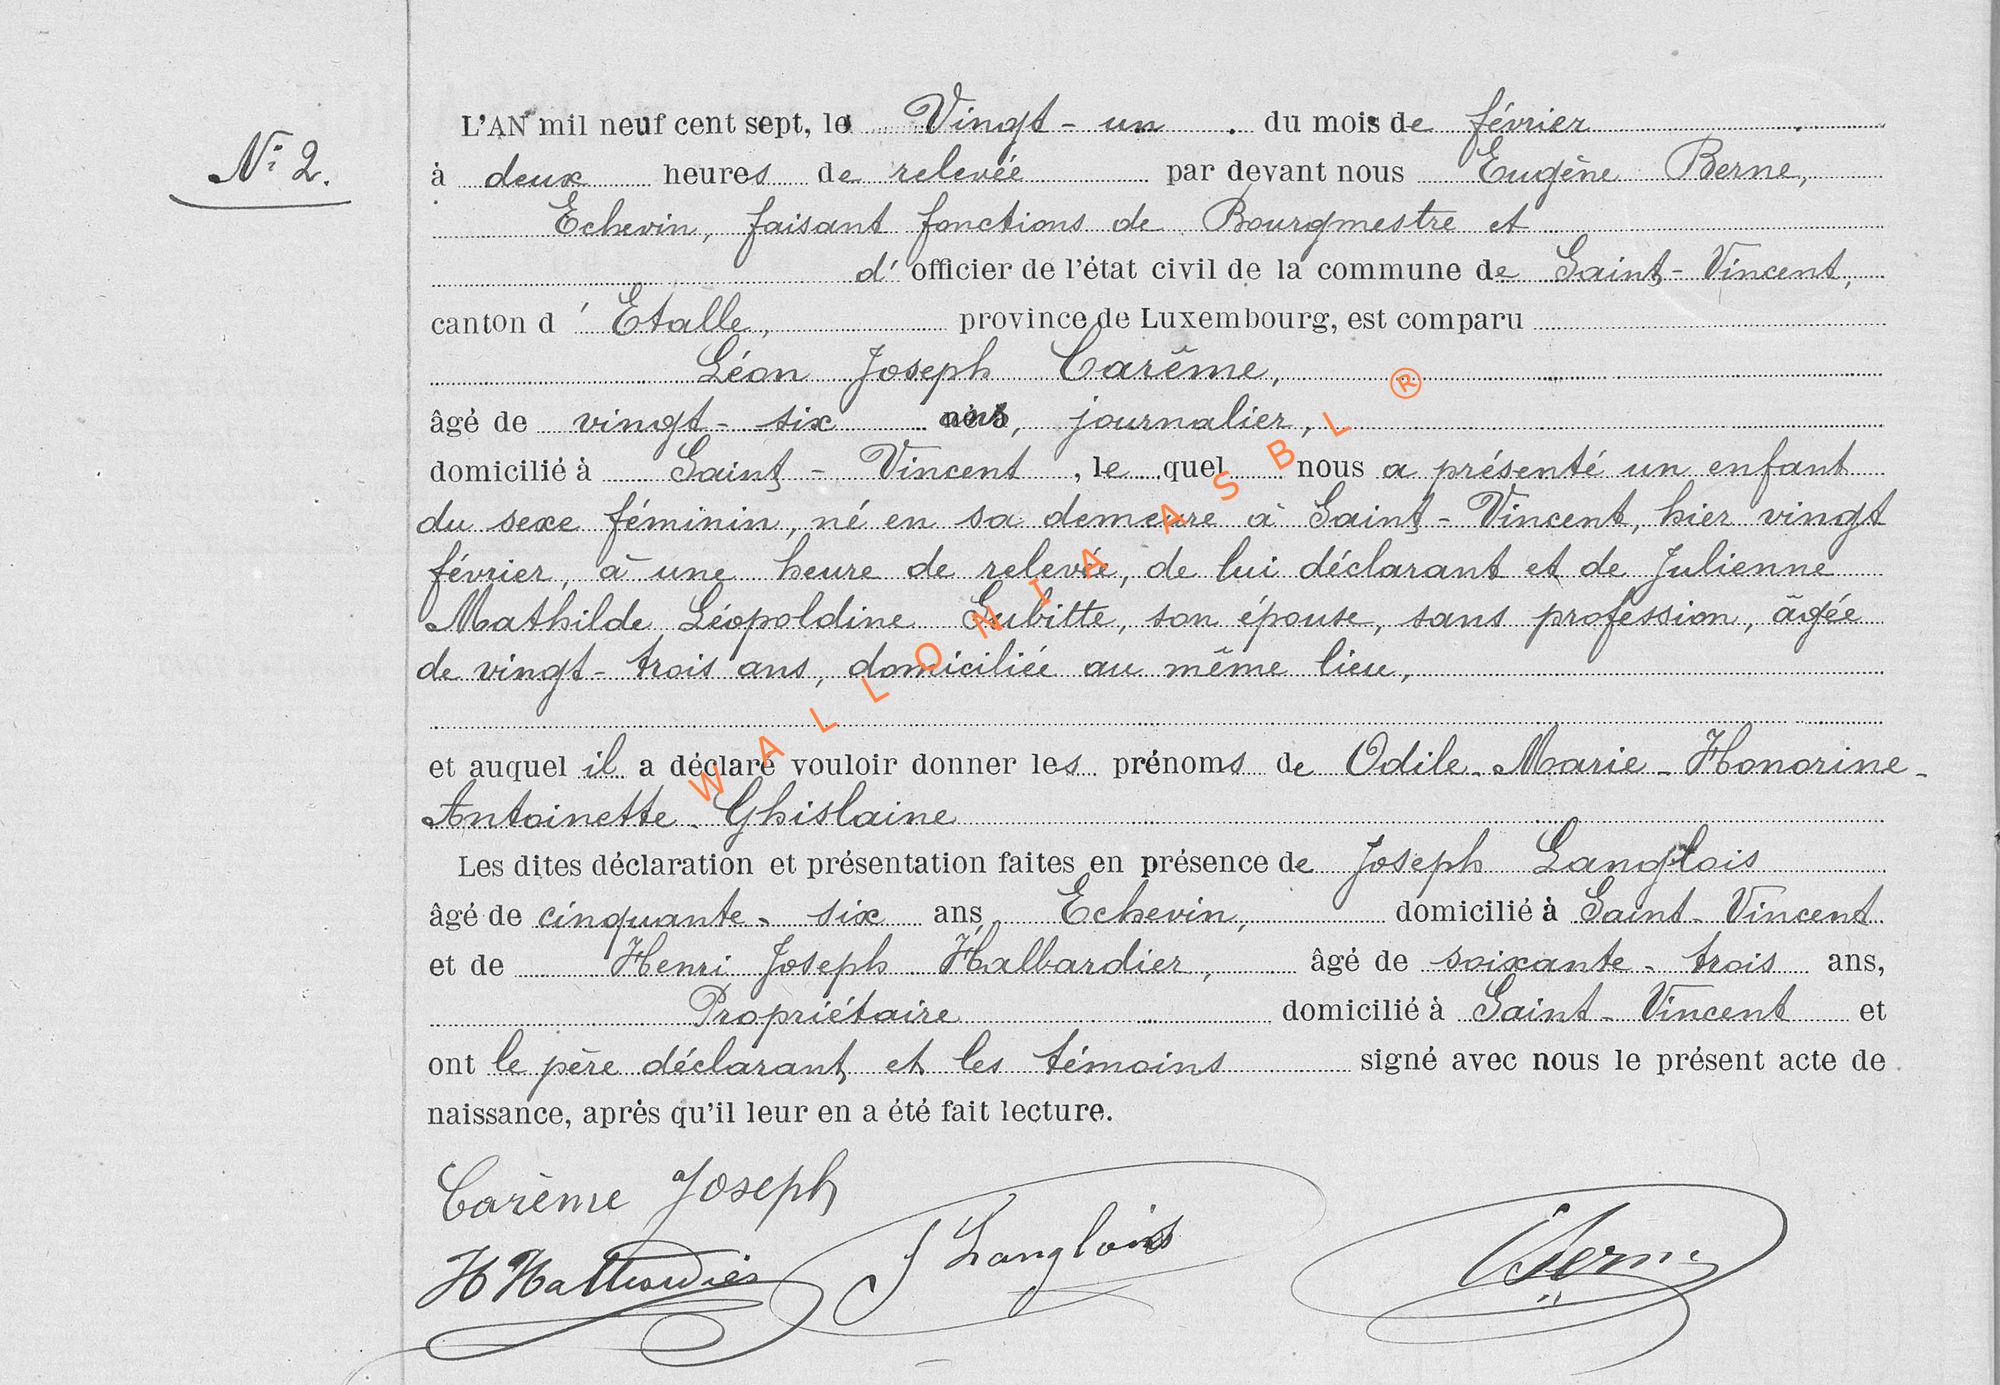 N° 2.
L'AN mil neuf cent sept, le Vingt-un du mois de février
à deux heures de relevée par devant nous Eugène Berne,
Echevin, faisant fonctions de Bourgmestre et
d'officier de l'état civil de la commune de Saint-Vincent,
canton d'Etalle, province de Luxembourg, est comparu
Léon Joseph Carême,
âgé de vingt-six ans, journalier,
domicilié à Saint-Vincent, le quel nous a présenté un enfant
du sexe féminin, né en sa demeure à Saint-Vincent, hier vingt
février, à une heure de relevée, de lui déclarant et de Julienne
Mathilde Léopoldine Gubitte, son épouse, sans profession, âgée
de vingt-trois ans, domiciliée au même lieu,
et auquel il a déclaré vouloir donner les prénoms de Odile-Marie-Honorine-
Antoinette-Ghislaine
Les dites déclaration et présentation faites en présence de Joseph Langlois
âgé de cinquante-six ans, Echevin, domicilié à Saint-Vincent
et de Henri Joseph Halbardier, âgé de soixante-trois ans,
Propriétaire domicilié à Saint-Vincent et
ont le père déclarant et les témoins signé avec nous le présent acte de
naissance, après qu'il leur en a été fait lecture.
Carême Joseph
H Halbardier J Langlois Berne
WALLONIA ASBL ®